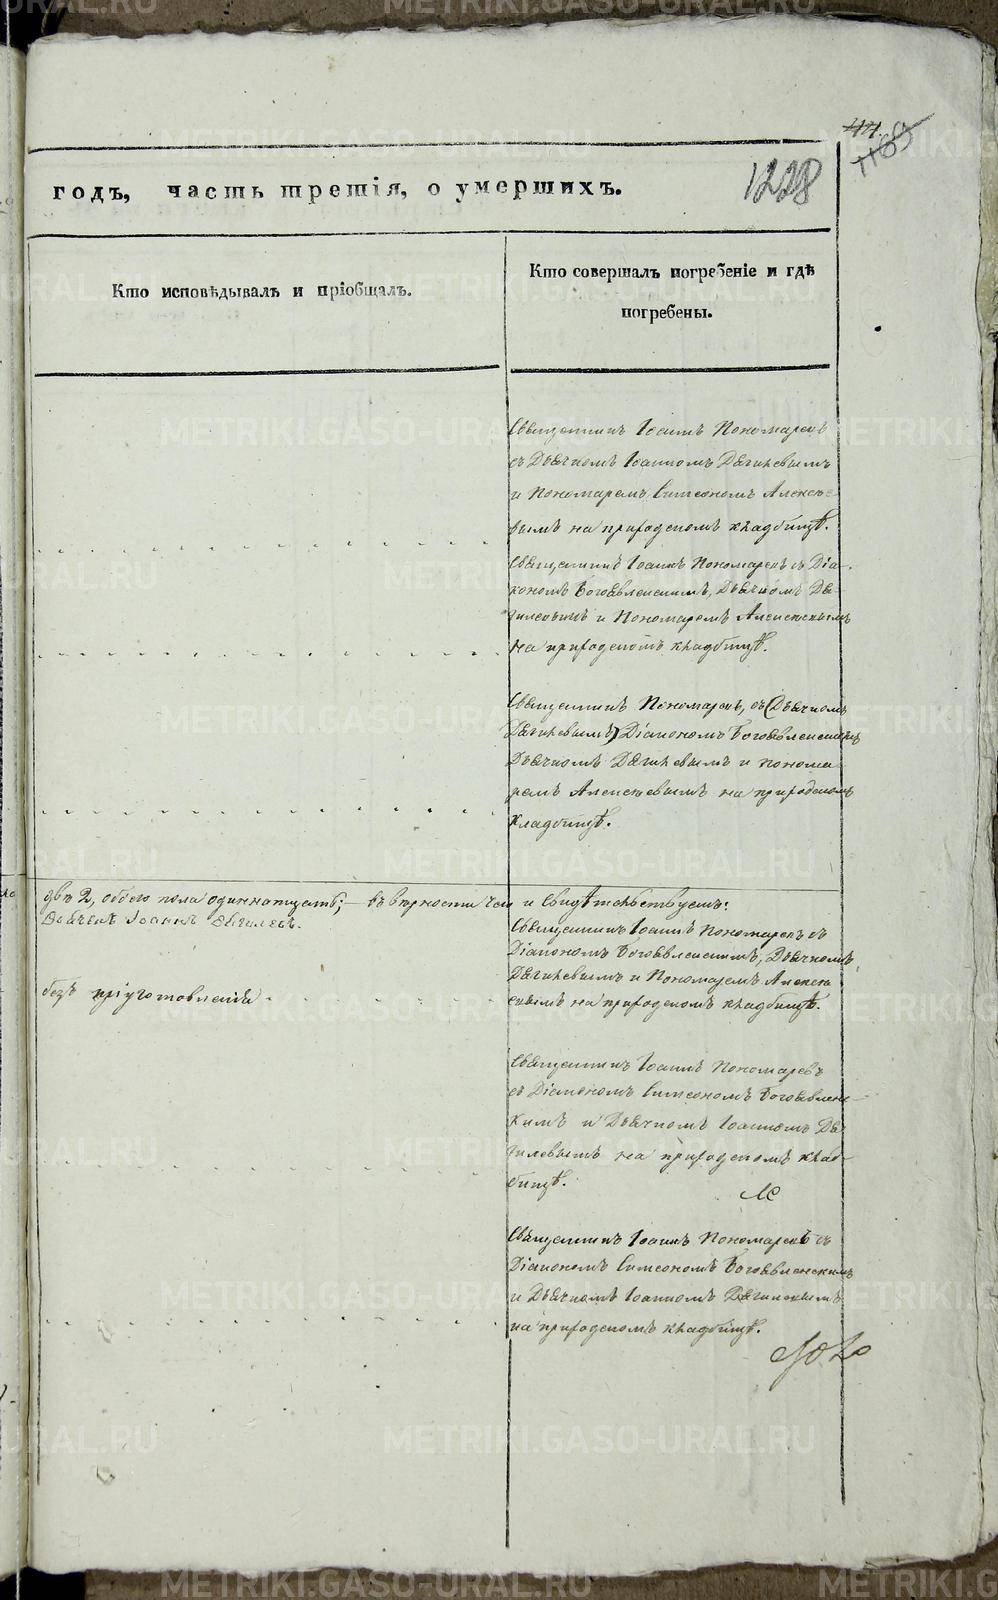 1169
1228
годъ, часть третія, о умершихъ.
Кто исповѣдывалъ и пріобщалъ.
Кто совершалъ погребеніе и гдѣ
погребены.
Священникъ Іоаннъ Пономаревъ
съ Дьячкомъ Іоанномъ Дягилевымъ
и Пономаремъ Симеономъ Алексѣе-
вымъ на приходскомъ кладбищѣ.
Священникъ Іоаннъ Пономаревъ съ Діа-
кономъ Богоявленскимъ, Дьячкомъ Дя-
гилевымъ и Пономаремъ Алексѣевымъ
на приходскомъ кладбищѣ.
Священникъ Пономаревъ, съ (Дьячкомъ
Дягилевымъ) Діакономъ Богоявленскимъ
Дьячкомъ Дягилевымъ и понома
ремъ Алексѣевымъ на приходскомъ
кладбищѣ.
двѣ 2, обоего пола одиннатцать; — въ вѣрности чего и свидѣтельствуемъ:
Дьячекъ Іоаннъ Дягилевъ.
Священникъ Іоаннъ Пономаревъ съ
Діакономъ Богоявленскимъ, Дьячкомъ
Дягилевымъ и Пономаремъ Алексѣ
евымъ на приходскомъ кладбищѣ.
безъ пріуготовленія
Священникъ Іоаннъ Пономаревъ
съ Діакономъ Симеономъ Богоявленс-
кимъ и Дьячкомъ Іоанномъ Дя-
гилевымъ на приходскомъ клад-
бищѣ.
Священникъ Іоаннъ Пономаревъ съ
Діакономъ Симеономъ Богоявленскимъ
и Дьячкомъ Іоанномъ Дягилевымъ
на приходскомъ кладбищѣ.
METRIKI.GASO-URAL.RU